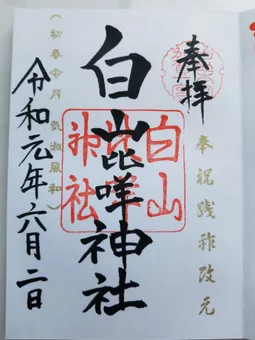 奉拝
奉祝践祚改元
白山
比咩
神社
白山比咩神社
(初春令月 気淑風和)
令和元年六月二日